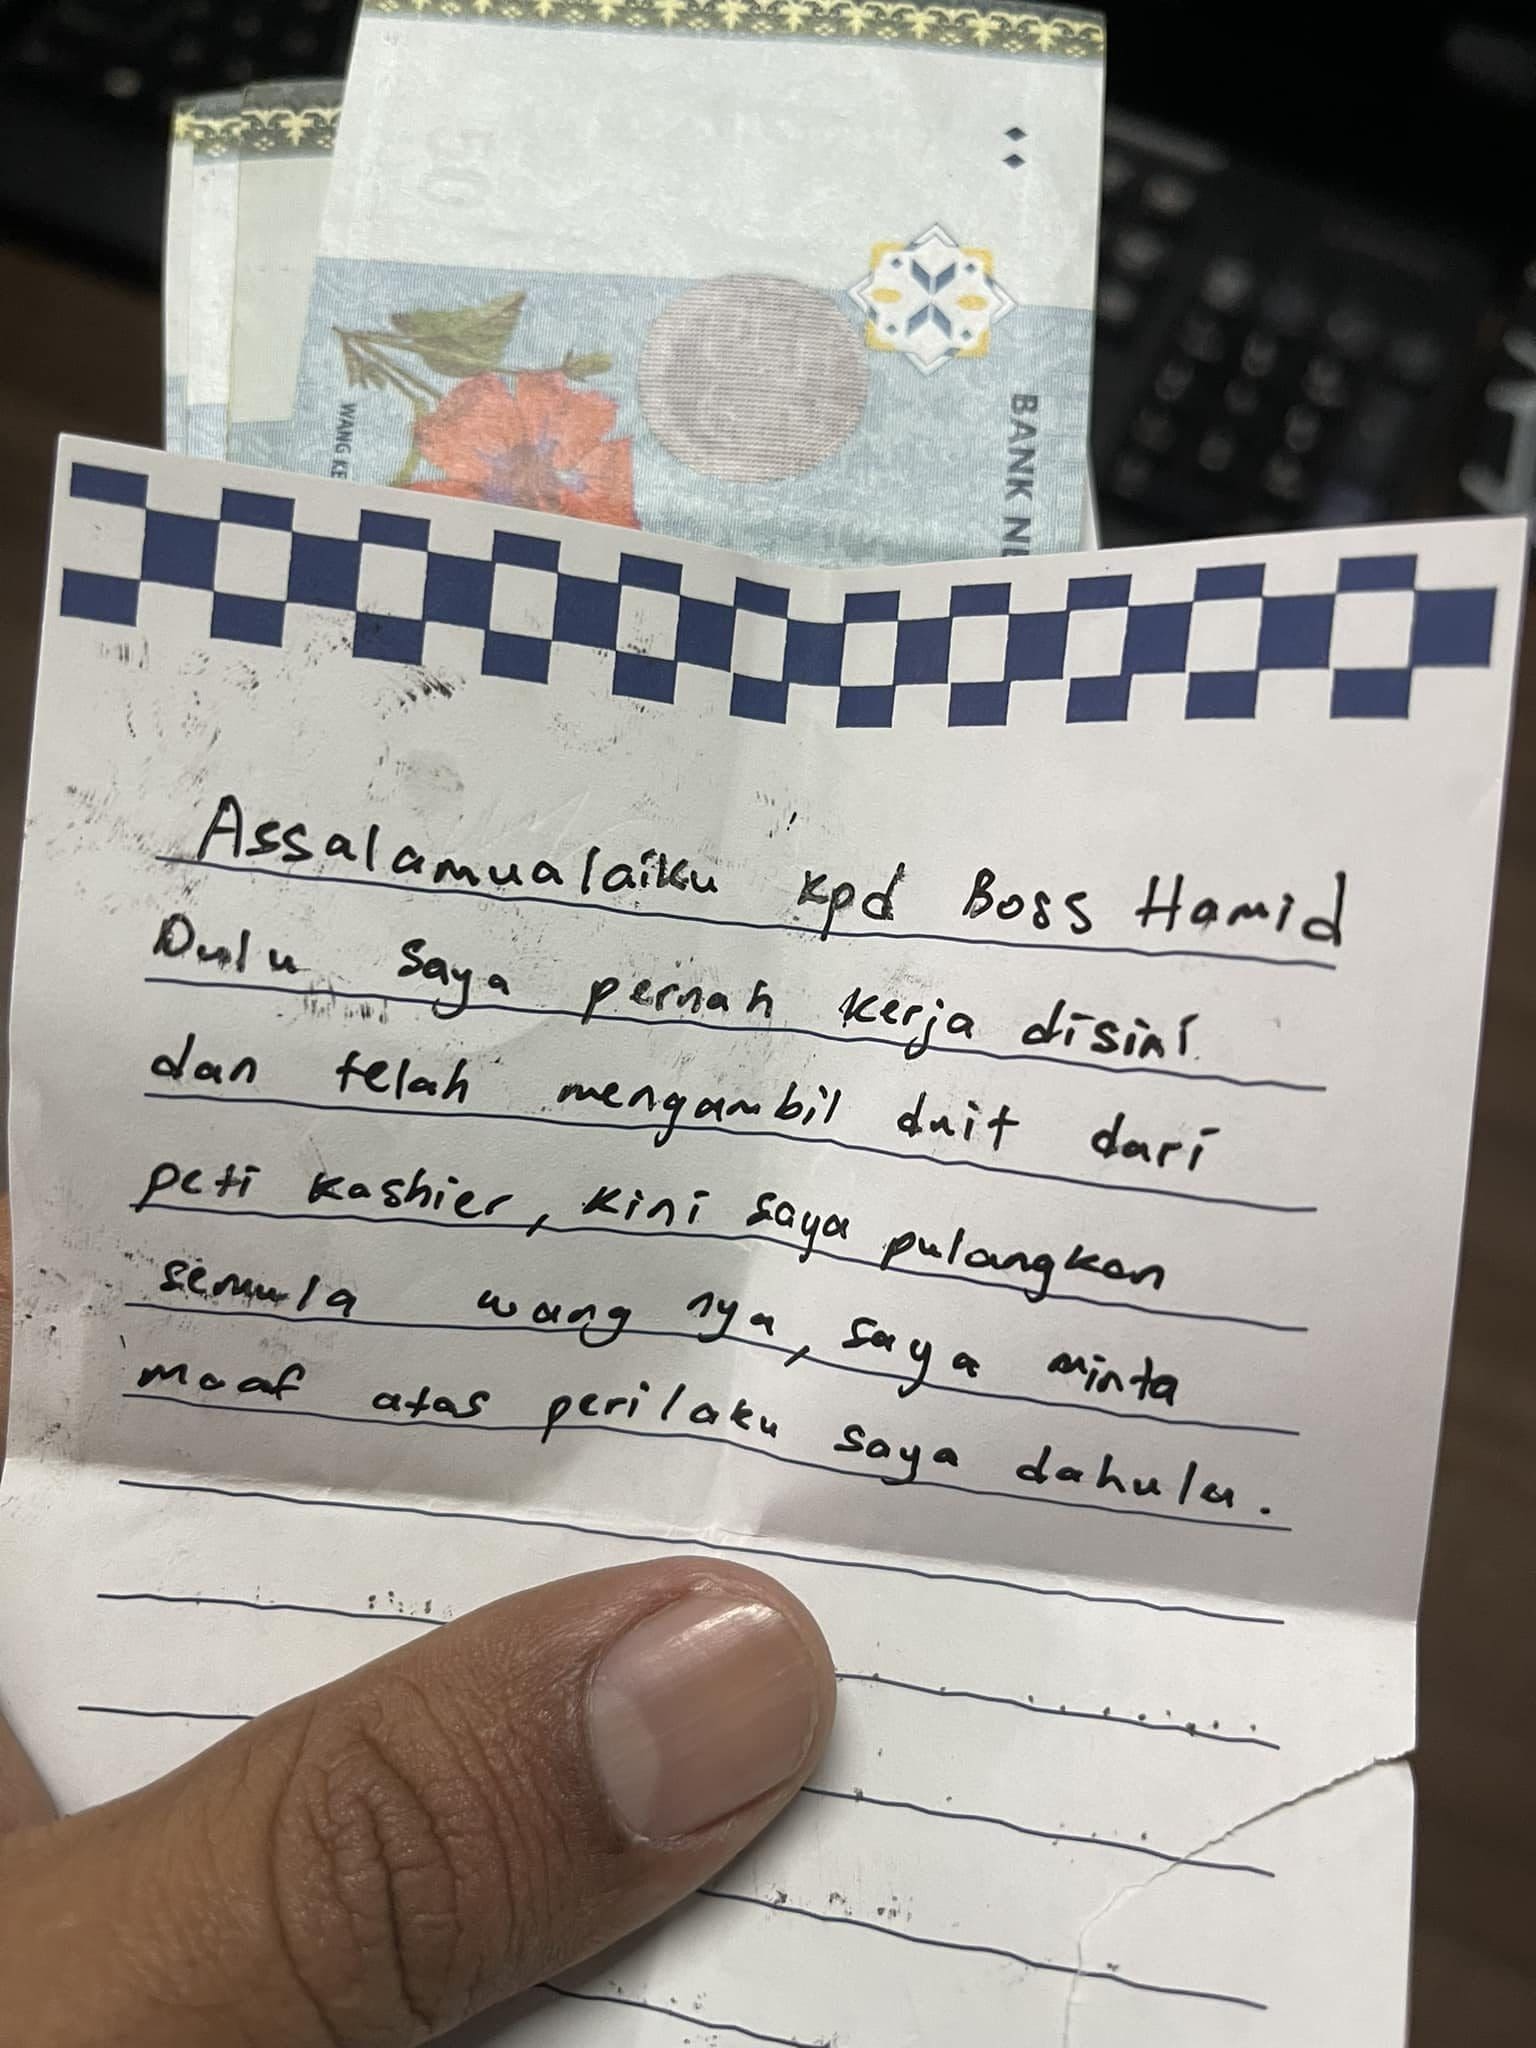 50
WANG KE
BANK NE
Assalamualaiku kpd Boss Hamid
Dulu saya pernah kerja disini
dan telah mengambil duit dari
peti kashier, kini saya pulangkan
semula wang nya, saya minta
maaf atas perilaku saya dahulu.